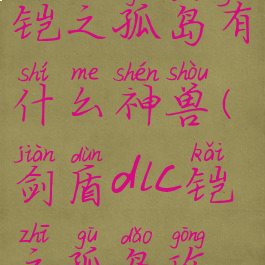 铠之孤岛有
shí me shén shòu
什么神兽(
jiàn dùn kǎi
剑盾dlc铠
zhī gū dǎo gōng
之孤岛攻